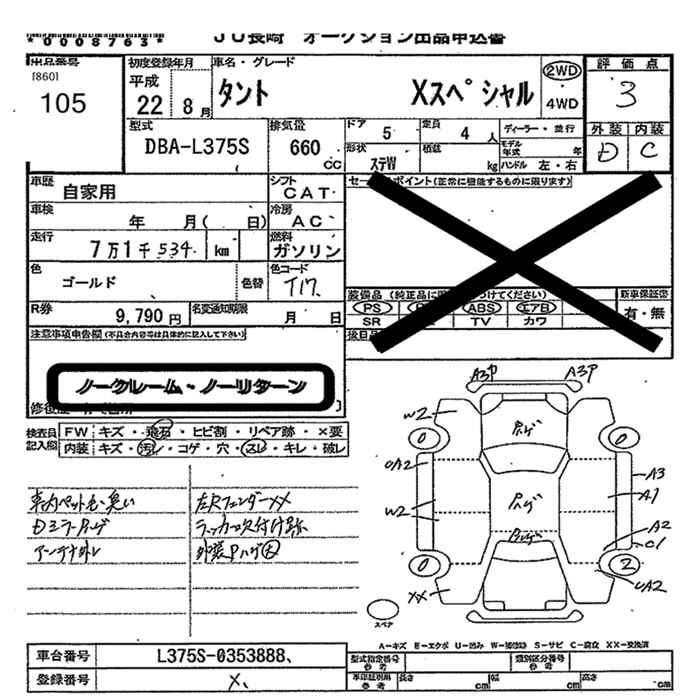 *0008763*
JU長崎 オークション出品申込書
出品番号 初度登録年月 車名・グレード 評価点
[860]
105
平成 22 8月 タント Xスペシャル 2WD 4WD 3
型式 排気量 ドア 5 定員 4人 ディーラー・並行 外装 内装
DBA-L375S 660cc 形状 ステW 積載 kg モデル年式 年 ハンドル 左・右 D C
車歴 自家用 シフト CAT セールスポイント(正常に機能するものに限ります)
車検 年 月( 日) 冷房 AC
走行 7万1千534 km 燃料 ガソリン
色 ゴールド 色替 色コード T17
装備品 (純正品に つけてください) 新車保証書
R券 9,790円 名変通知期限 月 日
PS ABS エアB 有・無
SR TV カワ
注意事項申告欄(不具合内容等は具体的に記入して下さい)
ノークレーム・ノーリターン
検査員記入欄 FW キズ・飛石・ヒビ割・リペア跡・X要
内装 キズ・汚レ・コゲ・穴・スレ・キレ・破レ
車内ペット毛・臭い 左Rフェンダーxx
Dミラーハゲ ラッカー吹付け跡
アンテナ外レ 外装Pハゲ大
A3P A3P
W2 ハゲ
0 0
UA2 A3
W2 ハゲ A1
ハゲ A2
C1
0 2
XX UA2
スペア
A-キズ E-エクボ U-凹み W-補修跡 S-サビ C-腐食 XX-交換済
車台番号 L375S-0353888
型式指定番号 参考 類別区分番号 参考
登録番号 X
車車証別用 参考 長さ cm 幅 cm 高さ cm